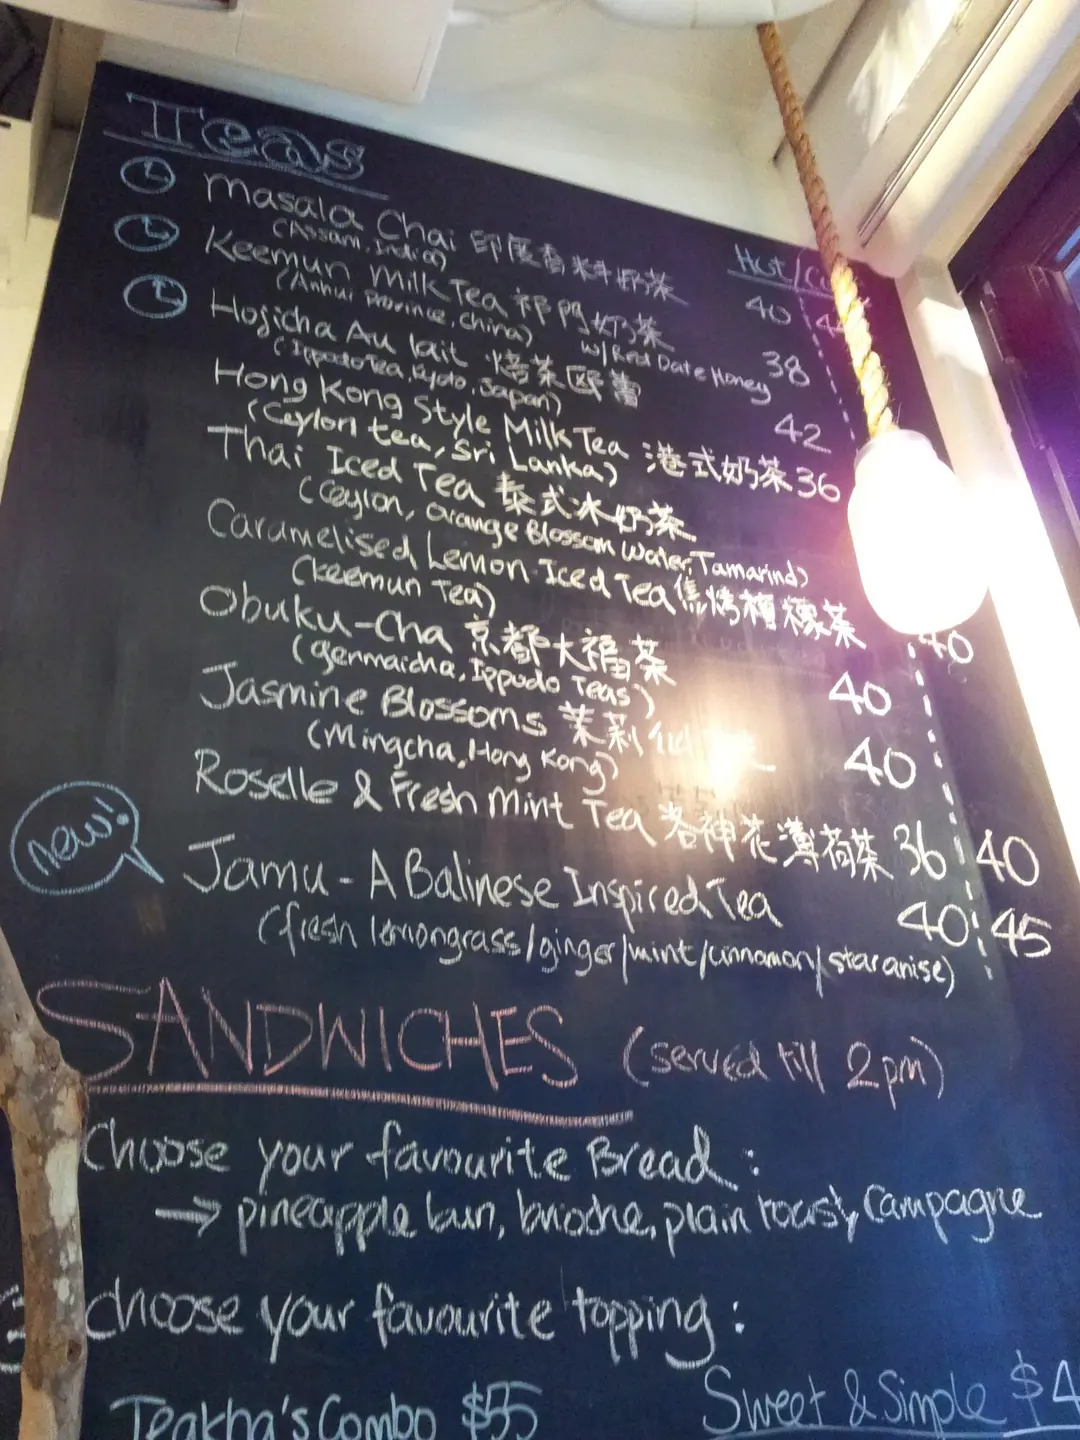 Teas
Hot/
Masala Chai 印度香料奶茶 40
(Assam, India)
Keemun Milk Tea 祁門奶茶 38
(Anhui Province, China) w/ Red Date Honey
Hojicha Au lait 焙茶歐蕾 42
(Ippodo Tea, Kyoto, Japan)
Hong Kong Style Milk Tea 港式奶茶 36
(Ceylon tea, Sri Lanka)
Thai Iced Tea 泰式冰奶茶
(Ceylon, Orange Blossom Water, Tamarind)
Caramelised Lemon Iced Tea 焦烤檸檬茶 40
(Keemun Tea)
Obuku-Cha 京都大福茶 40
(genmaicha, Ippudo Teas)
Jasmine Blossoms 茉莉 40
(Mingcha, Hong Kong)
Roselle & Fresh Mint Tea 洛神花薄荷茶 36 40
new!
Jamu - A Balinese Inspired Tea 40 45
(fresh lemongrass/ginger/mint/cinnamon/staranise)
SANDWICHES (served till 2pm)
Choose your favourite Bread :
→ pineapple bun, brioche, plain toast, Campagne
choose your favourite topping :
Teakha's Combo $55 Sweet & Simple $4